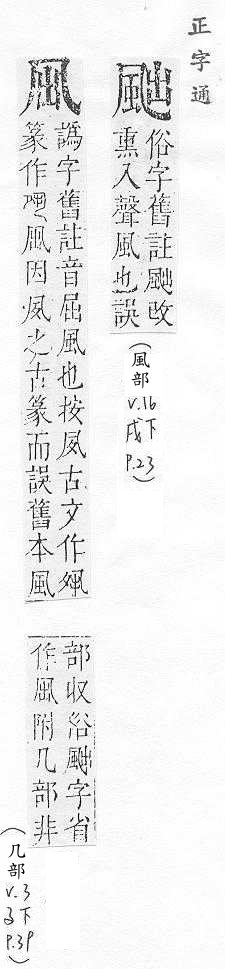 正字通
俗字舊註改
熏入聲風也誤
(風部
v.16
戌下
p.23)
譌字舊註音屈風也按夙古文作
篆作因夙之古篆而誤舊本風
部收俗字省
作附几部非
(几部
v.3
子下
p.39)